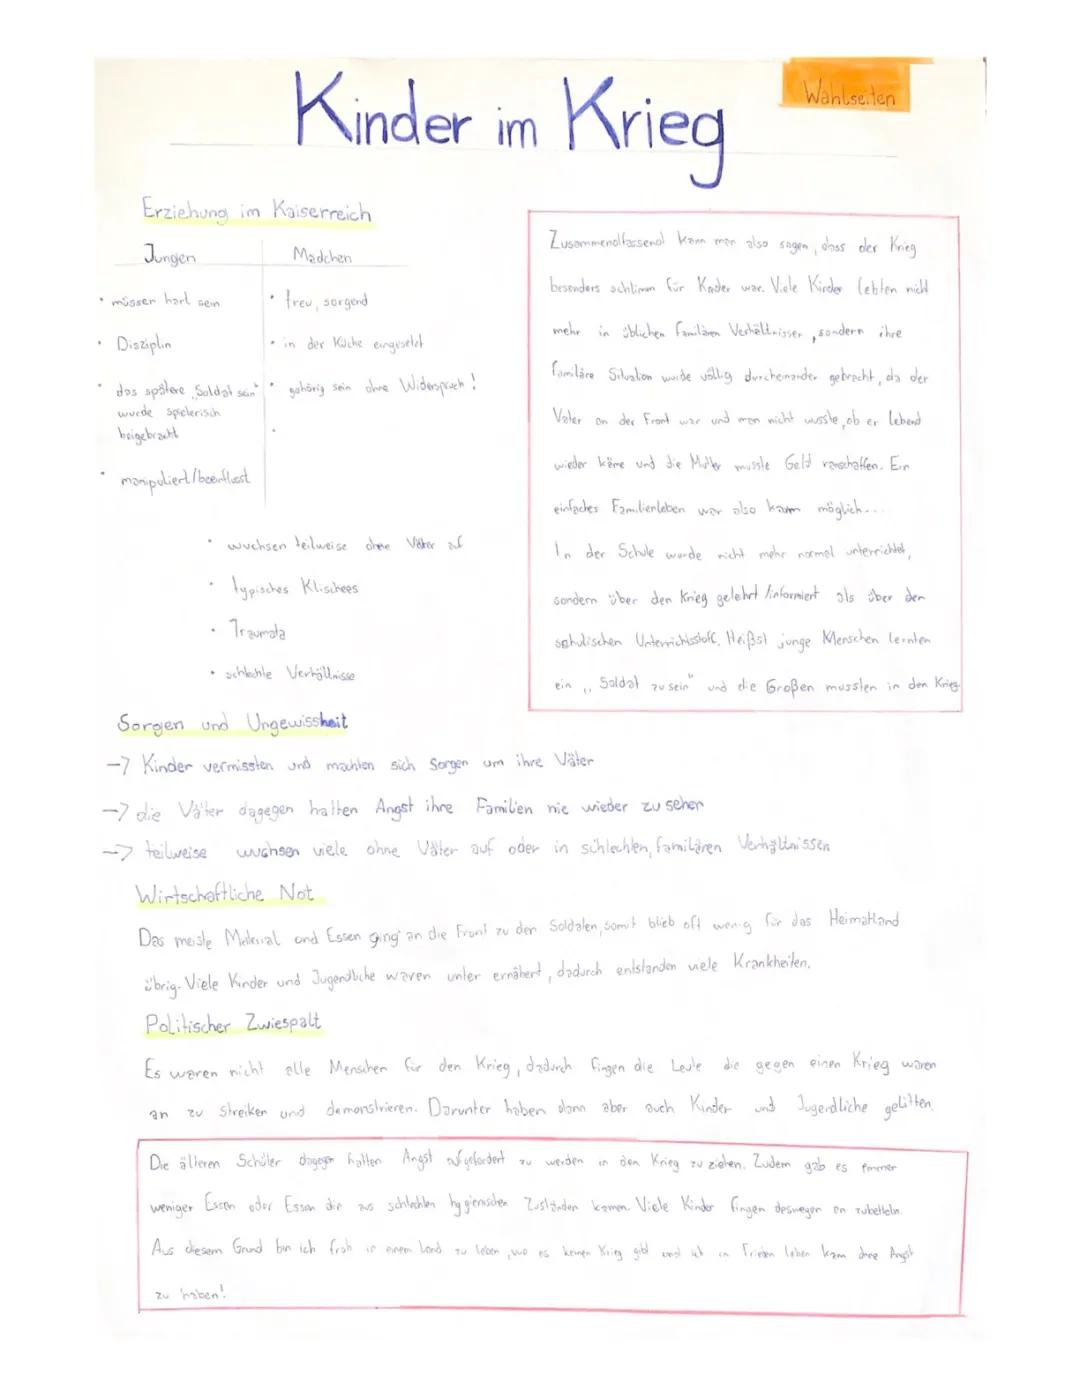 Kinder im Krieg
Wahlseiten
Erziehung im Kaiserreich
Jungen
• müssen hart sein
• Disziplin
• das spätere „Soldat sein"
wurde spielerisch
beigebracht
• manipuliert/beeinflusst
Mädchen
• treu, sorgend
• in der Küche eingesetzt
• gehörig sein ohne Widerspruch!
•
• wuchsen teilweise ohne Väter auf
• typisches Klischees
• Traumata
• schlechte Verhältnisse
Zusammenfassend kann man also sagen, dass der Krieg
besonders schlimm für Kinder war. Viele Kinder lebten nicht
mehr in üblichen familären Verhältnisser, sondern ihre
familäre Situation wurde völlig durcheinander gebracht, da der
Vater an der Front war und man nicht wusste, ob er lebend
wieder käme und die Mutter musste Geld ranschaffen. Ein
einfaches Familienleben war also kaum möglich....
In der Schule wurde nicht mehr normal unterrichtet,
sondern über den Krieg gelehrt/informiert als über den
schulischen Unterrichtsstoff. Heißst junge Menschen lernten
ein „Soldat zu sein" und die Großen mussten in den Krieg.
Sorgen und Ungewissheit
-> Kinder vermissten und machten sich Sorgen um ihre Väter
-> die Väter dagegen hatten Angst ihre Familien nie wieder zu sehen
-> teilweise wuchsen viele ohne Väter auf oder in schlechten, familären Verhältnissen
Wirtschaftliche Not
Das meiste Material und Essen ging an die Front zu den Soldaten, somit blieb oft wenig für das Heimatland
übrig. Viele Kinder und Jugendliche waren unter ernährt, dadurch entstanden viele Krankheiten.
Politischer Zwiespalt
Es waren nicht alle Menschen für den Krieg, dadurch fingen die Leute die gegen einen Krieg waren
an zu Streiken und demonstrieren. Darunter haben dann aber auch Kinder und Jugendliche gelitten.
Die älteren Schüler dagegen hatten Angst aufgefordert zu werden in den Krieg zu ziehen. Zudem gab es immer
weniger Essen oder Essen die aus schlechten hygienischen Zuständen kamen. Viele Kinder fingen deswegen an zubetteln.
Aus diesem Grund bin ich froh in einem Land zu leben, wo es keinen Krieg gibt und ich in Frieden leben kann ohne Angst
zu haben!